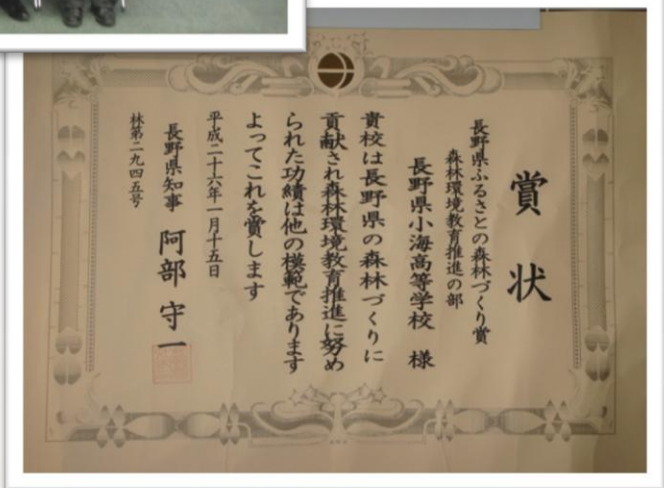 賞状
長野県ふるさとの森林づくり賞
森林環境教育推進の部
長野県小海高等学校 様
貴校は長野県の森林づくりに
貢献され森林環境教育推進に努め
られた功績は他の模範であります
よってこれを賞します
平成二十六年一月十五日
長野県知事 阿部 守一
林第二九四五号